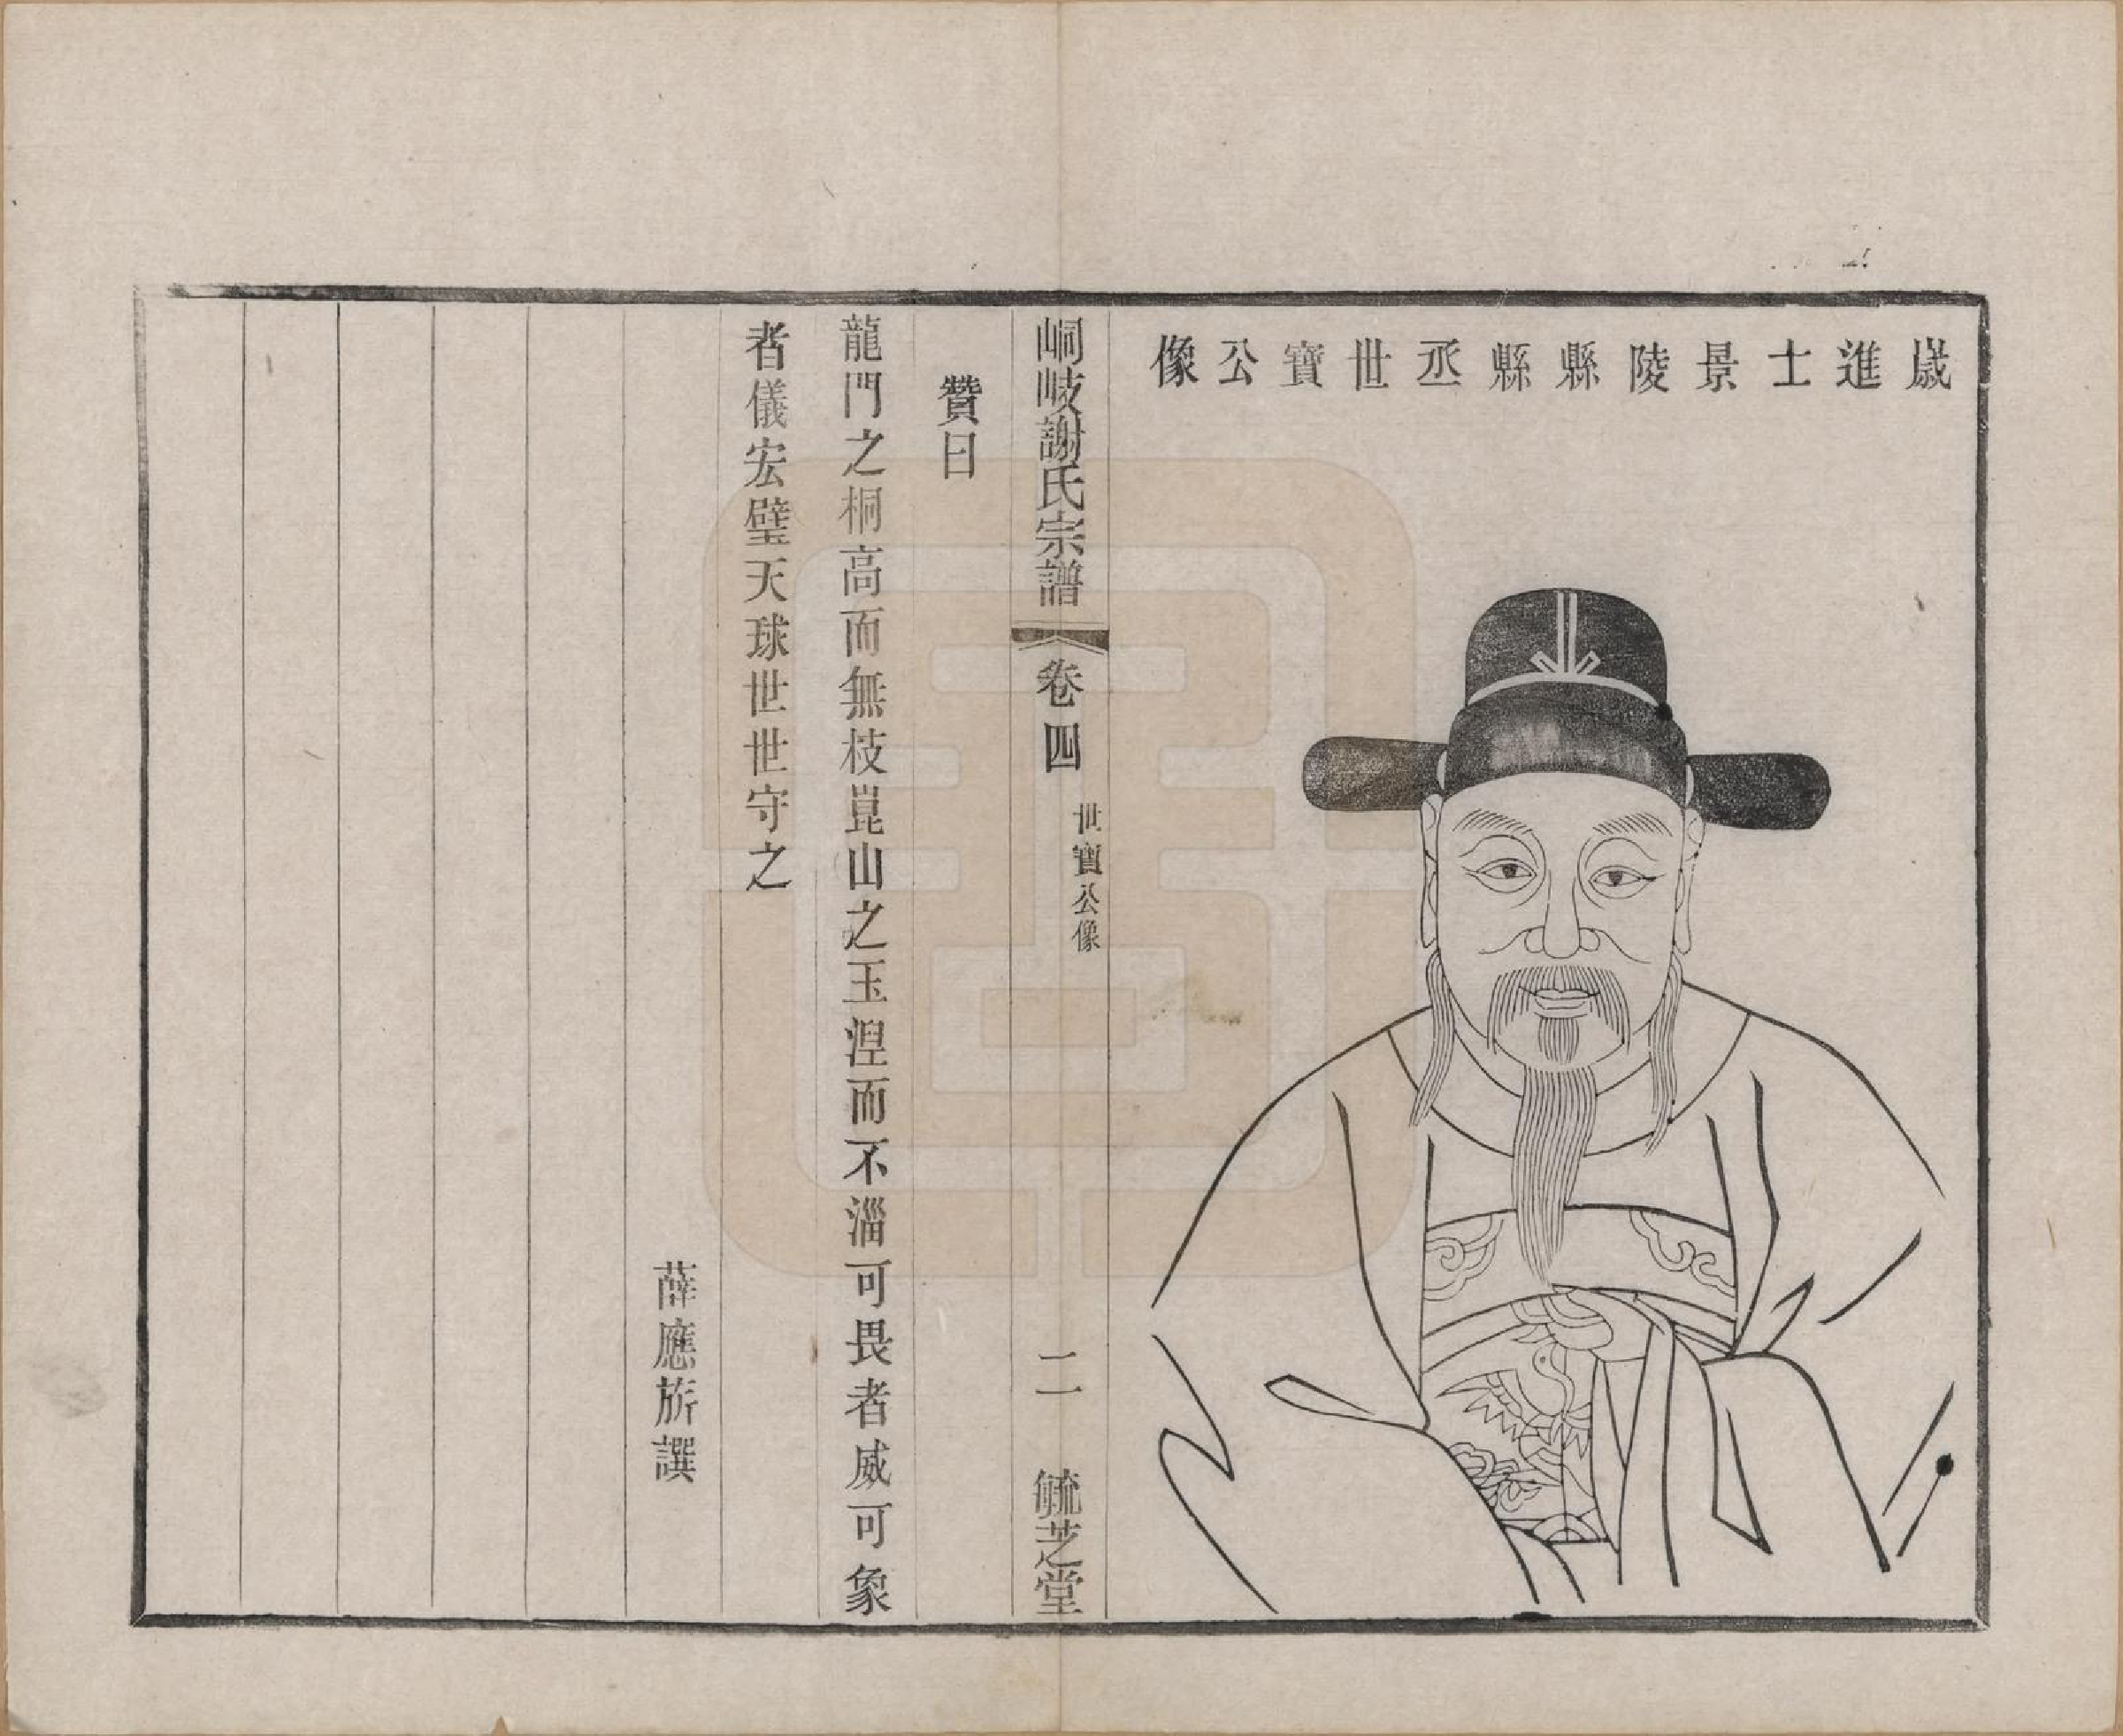 歲進士景陵縣縣丞世寶公像
峒岐謝氏宗譜 卷四 世寶公像 二 毓芝堂
贊曰
龍門之桐高而無枝崑山之玉涅而不淄可畏者威可象
者儀宏璧天球世世守之
薛應旂譔